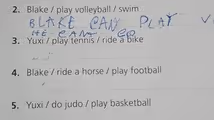 2. Blake / play volleyball / swim
BLAKE CAN PLAY V
HE CAN'T GO
3. Yuxi / play tennis / ride a bike
4. Blake / ride a horse / play football
5. Yuxi / do judo / play basketball